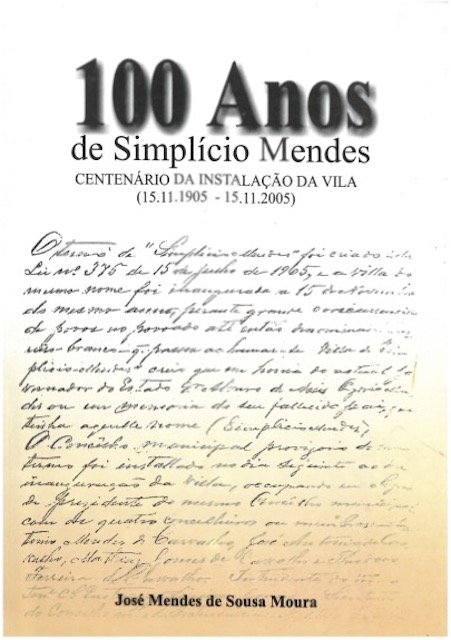 100 Anos
de Simplício Mendes
CENTENÁRIO DA INSTALAÇÃO DA VILA
(15.11.1905 - 15.11.2005)
O termo de "Simplicio Mendes" foi criado
Lei nº 375 de 15 de Julho de 1905, e a villa do
mesmo nome foi inaugurada a 15 de Novembro
do mesmo anno, perante grande concurrencia
de povos no povoado até então
branco q. passou a chamar-se Villa de
plicio Mendes
vernador do Estado Dr. Alvaro de Assis
em memoria do seu fallecido
tinha aquelle nome (Simplicio Mendes)
O Concelho municipal provisorio
foi installado no dia seguinte
inauguração da Villa, occupando
de Presidente do mesmo Concelho
com de quatro conselheiros ou membros
tonio Mendes de Carvalho, José
Gomes de Carvalho e
Ferreira de Carvalho. Intendente
José Mendes de Sousa Moura